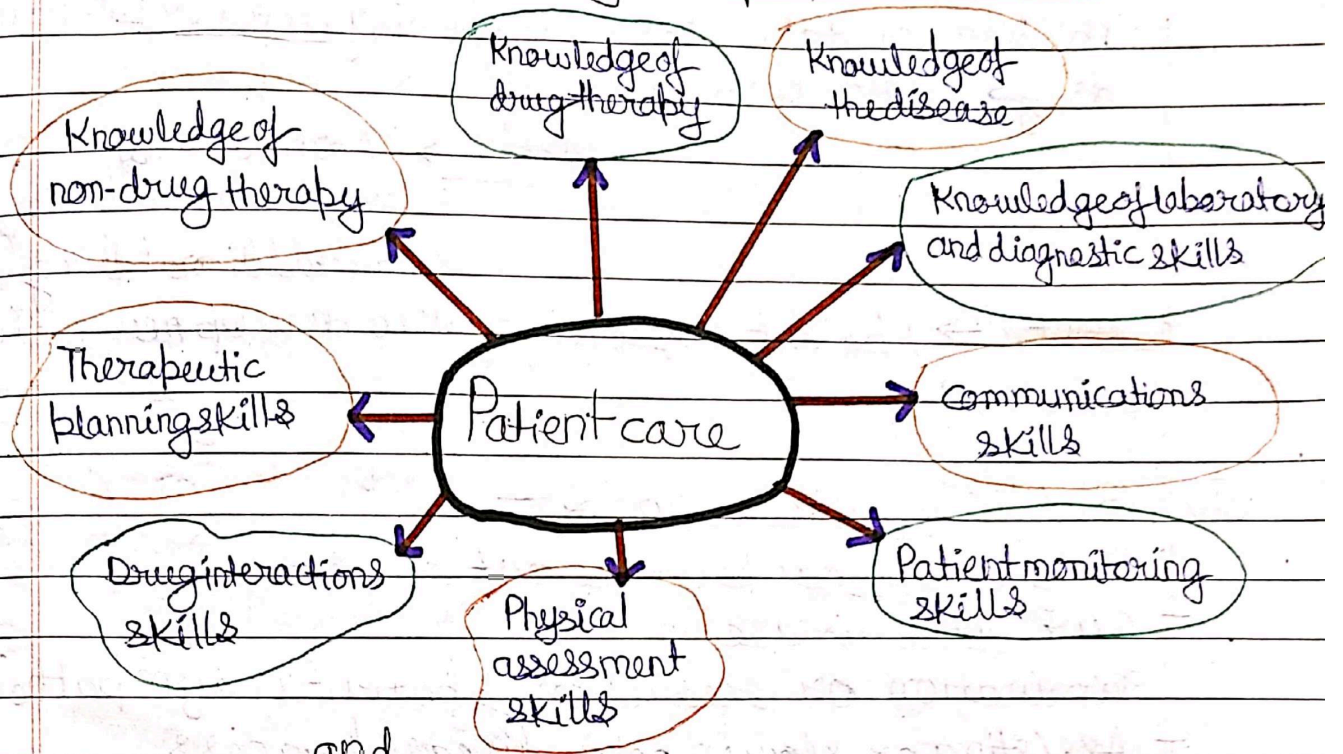 Knowledge of
drug therapy
Knowledge of
the disease
Knowledge of
non-drug therapy
Knowledge of laboratory
and diagnostic skills
Therapeutic
planning skills
Patient care
Communications
skills
Drug interactions
skills
Physical
assessment
skills
Patient monitoring
skills
and